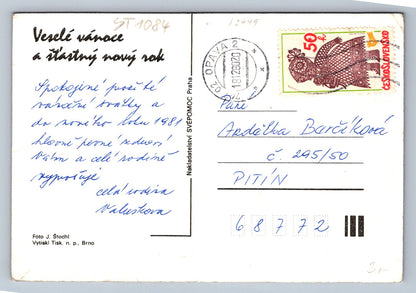 ŠT 1084
12449
Veselé vánoce
a šťastný nový rok
Spokojené prožití
vánoční svátky a
do nového roku 1981
hlavně pevné zdraví
Vám a celé rodině
vyprošuje
celá rodina
Valuškova
Foto J. Štochl
Vytiskl Tisk, n. p., Brno
Nakladatelství SVÉPOMOC Praha
OPAVA 2
18.12.80-20
50
ČESKOSLOVENSKO
Paní
Barčíková
č. 295/50
PITÍN
68772